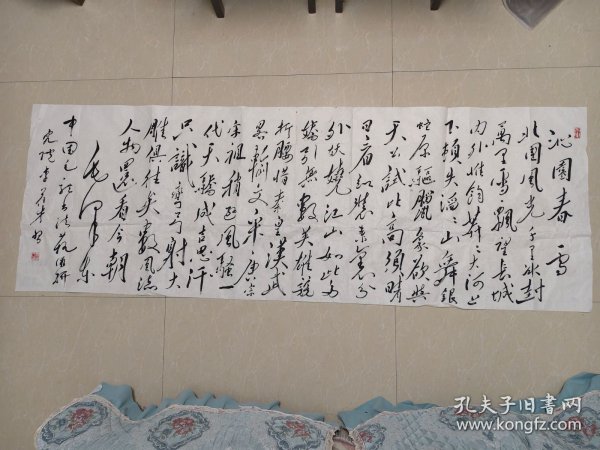 沁园春 雪
北国风光千里冰封
万里雪飘望长城
内外惟馀莽莽大河上
下顿失滔滔山舞银
蛇原驱腊象欲与
天公试比高须晴
日看红装素裹分
外妖娆江山如此多
娇引无数英雄竞
折腰惜秦皇汉武
略输文采唐宗
宋祖稍逊风骚一
代天骄成吉思汗
只识弯弓射大
雕俱往矣数风流
人物还看今朝
毛泽东
中国
孔夫子旧书网
www.kongfz.com